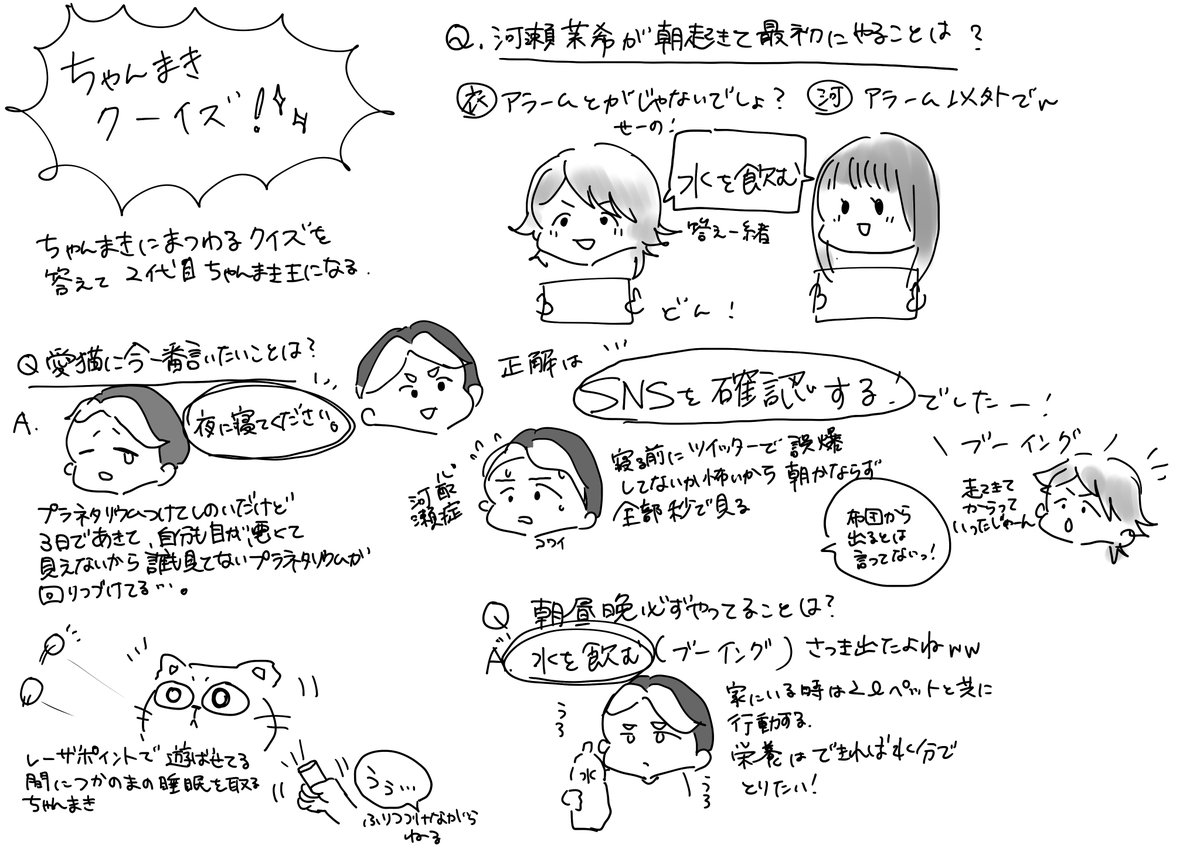 ちゃんまき
クーイズ!
ちゃんまきにまつわるクイズを
答えて 2代目ちゃんまき王になる.
Q. 河瀬茉希が朝起きて最初にやることは?
衣 アラームとかじゃないでしょ?
河 アラーム以外でw
せーの!
水を飲む
答え一緒
どん!
正解は
SNSを確認する!
でしたー!
寝る前にツイッターで誤爆
してないか怖いから朝かならず
全部秒で見る
心配症
河瀬
コワイ
ブーイング
走ってきて
からって
いったじゃーん
布団から
出るとは
言ってないっ!
Q 愛猫に今一番言いたいことは?
A.
夜に寝てください。
プラネタリウムつけてしのいだけど
3日であきて、自分も目が悪くて
見えないから誰も見てないプラネタリウムが
回りつづけてる…。
レーザポイントで遊ばせてる
間につかのまの睡眠を取る
ちゃんまき
うぅ…
ふりつづけながら
ねる
Q 朝昼晩必ずやってることは?
A. 水を飲む (ブーイング) さっき出たよねww
家にいる時は2ℓペットと共に
行動する.
栄養はできれば水分で
とりたい!
水
うろ
うろ